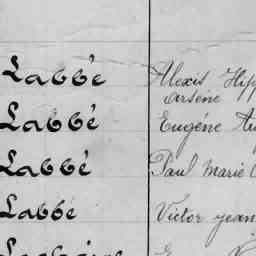 Labbé Alexis Hipp
Arsène
Labbé Eugène Au
Labbé Paul Marie
Labbé Victor jean